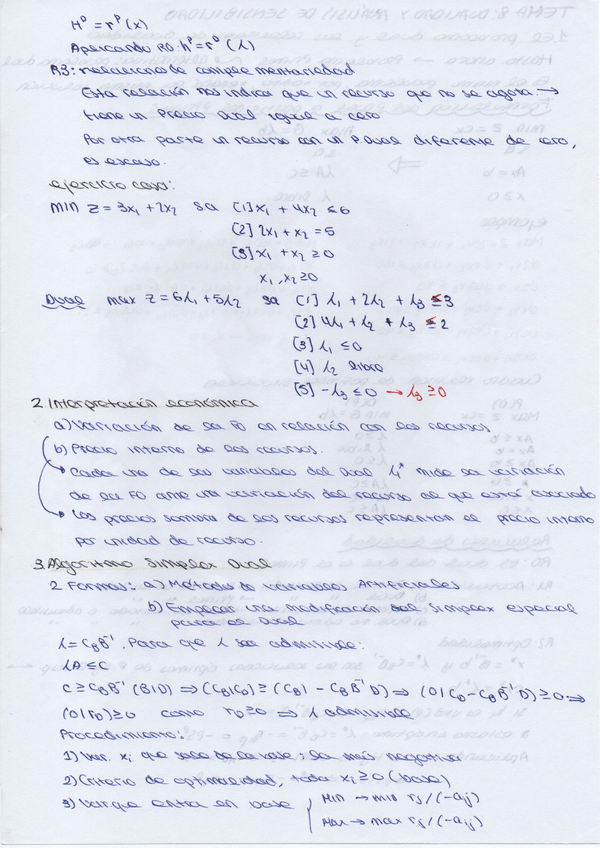 H^D = r^P (x)
Aplicando R0: h^P = r^D (λ)
R3: relaciones de complementariedad
Esta relación nos indica que un recurso que no se agota →
tiene un Precio Dual igual a cero
Por otra parte un recurso con un P. Dual diferente de cero,
es escaso.
ejercicio casa:
MIN z = 3x₁ + 2x₂ sa [1] x₁ + 4x₂ ≤ 6
[2] 2x₁ + x₂ = 5
[3] x₁ + x₂ ≥ 0
x₁, x₂ ≥ 0
Dual max z = 6λ₁ + 5λ₂ sa [1] λ₁ + 2λ₂ + λ₃ ≤ 3
[2] 4λ₁ + λ₂ + λ₃ ≤ 2
[3] λ₁ ≤ 0
[4] λ₂ libre
[5] -λ₃ ≤ 0 → λ₃ ≥ 0
2. Interpretación económica
a) Variación de la FO en relación con los recursos
b) Precio interno de los recursos.
Cada una de las variables del Dual λi* mide la variación
de la FO ante una variación del recurso al que está asociado
Los precios sombra de los recursos representan el precio interno
por unidad de recurso.
3. Algoritmo Simplex Dual
2 Formas: a) Método de variables Artificiales
b) Empezar una modificación del Simplex especial
para el Dual
λ = C_B B⁻¹. Para que λ sea admisible:
λA ≤ C
C ≥ C_B B⁻¹ (B|D) ⇒ (C_B|C_D) ≥ (C_B| - C_B B⁻¹ D) ⇒ (0|C_D - C_B B⁻¹ D) ≥ 0 ⇒
(0|r_D) ≥ 0 como r_D ≥ 0 ⇒ λ admisible
Procedimiento:
1) Var. xi que sale de la base: la más negativa
2) Criterio de optimalidad, toda xi ≥ 0 (base)
3) Var que entra en base Min → min rj / (-aij)
Max → max rj / (-aij)